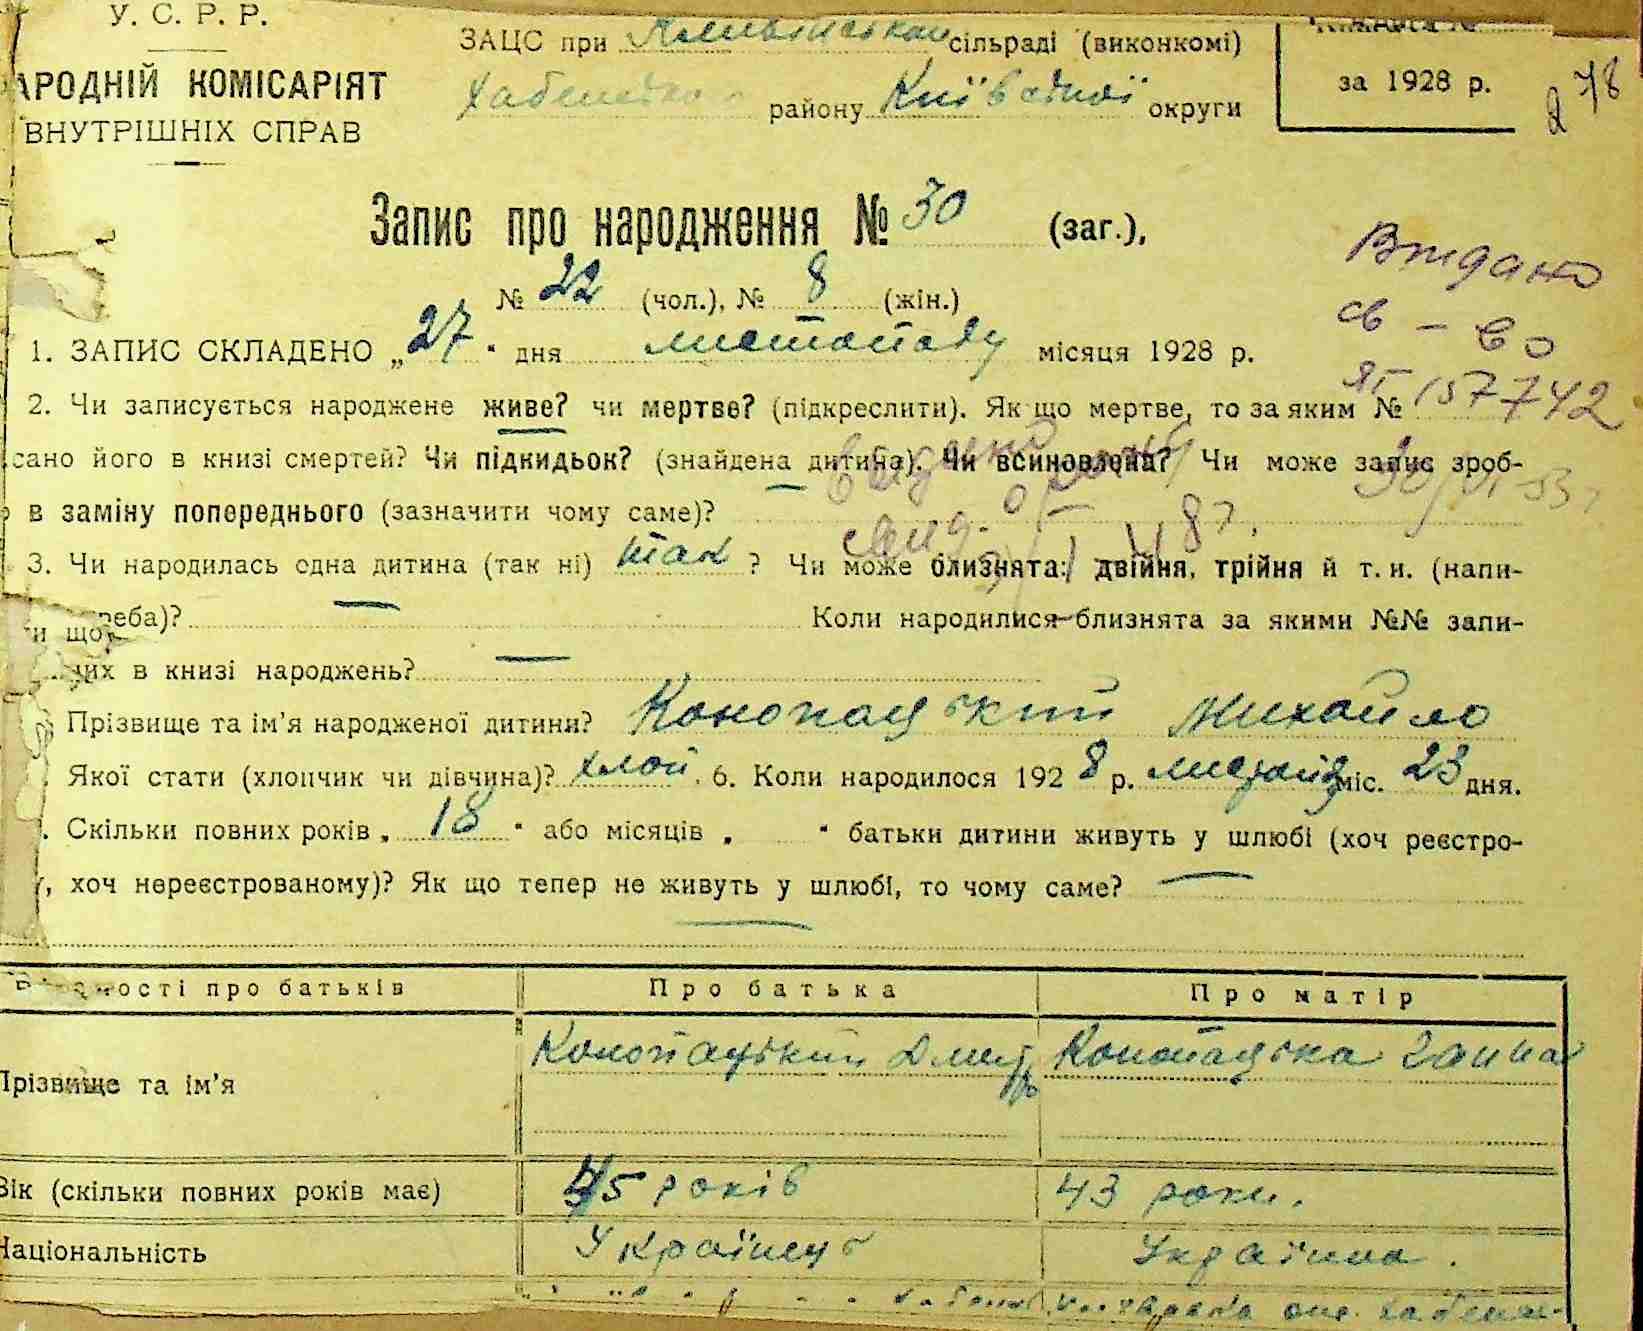 У. С. Р. Р.
АРОДНІЙ КОМІСАРІЯТ
ВНУТРІШНІХ СПРАВ
ЗАЦС при сільраді (виконкомі)
району Київської округи
за 1928 р.
278
Запис про народження № 30 (заг.),
№ 22 (чол.), № 8 (жін.)
1. ЗАПИС СКЛАДЕНО „27" дня листопаду місяця 1928 р.
Видано
св-во
ЯГ 157742
2. Чи записується народжене живе? чи мертве? (підкреслити). Як що мертве, то за яким №
сано його в книзі смертей? Чи підкидьок? (знайдена дитина). Чи всиновлена? Чи може запис зроб-
в заміну попереднього (зазначити чому саме)?
3. Чи народилась одна дитина (так ні) так ? Чи може близнята: двійня, трійня й т. и. (напи-
и що треба)? Коли народилися близнята за якими №№ запи-
них в книзі народжень?
Прізвище та ім'я народженої дитини? Конопацький Михайло
Якої стати (хлопчик чи дівчина)? хлоп. 6. Коли народилося 1928 р. листопад міс. 23 дня.
Скільки повних років „ 18 " або місяців „ " батьки дитини живуть у шлюбі (хоч реєстро-
, хоч нереєстрованому)? Як що тепер не живуть у шлюбі, то чому саме?
Відомості про батьків Про батька Про матір
Прізвище та ім'я Конопацький Дмитр Конопацька Ганна
Вік (скільки повних років має) 45 років 43 роки.
Національність Українець Українка.